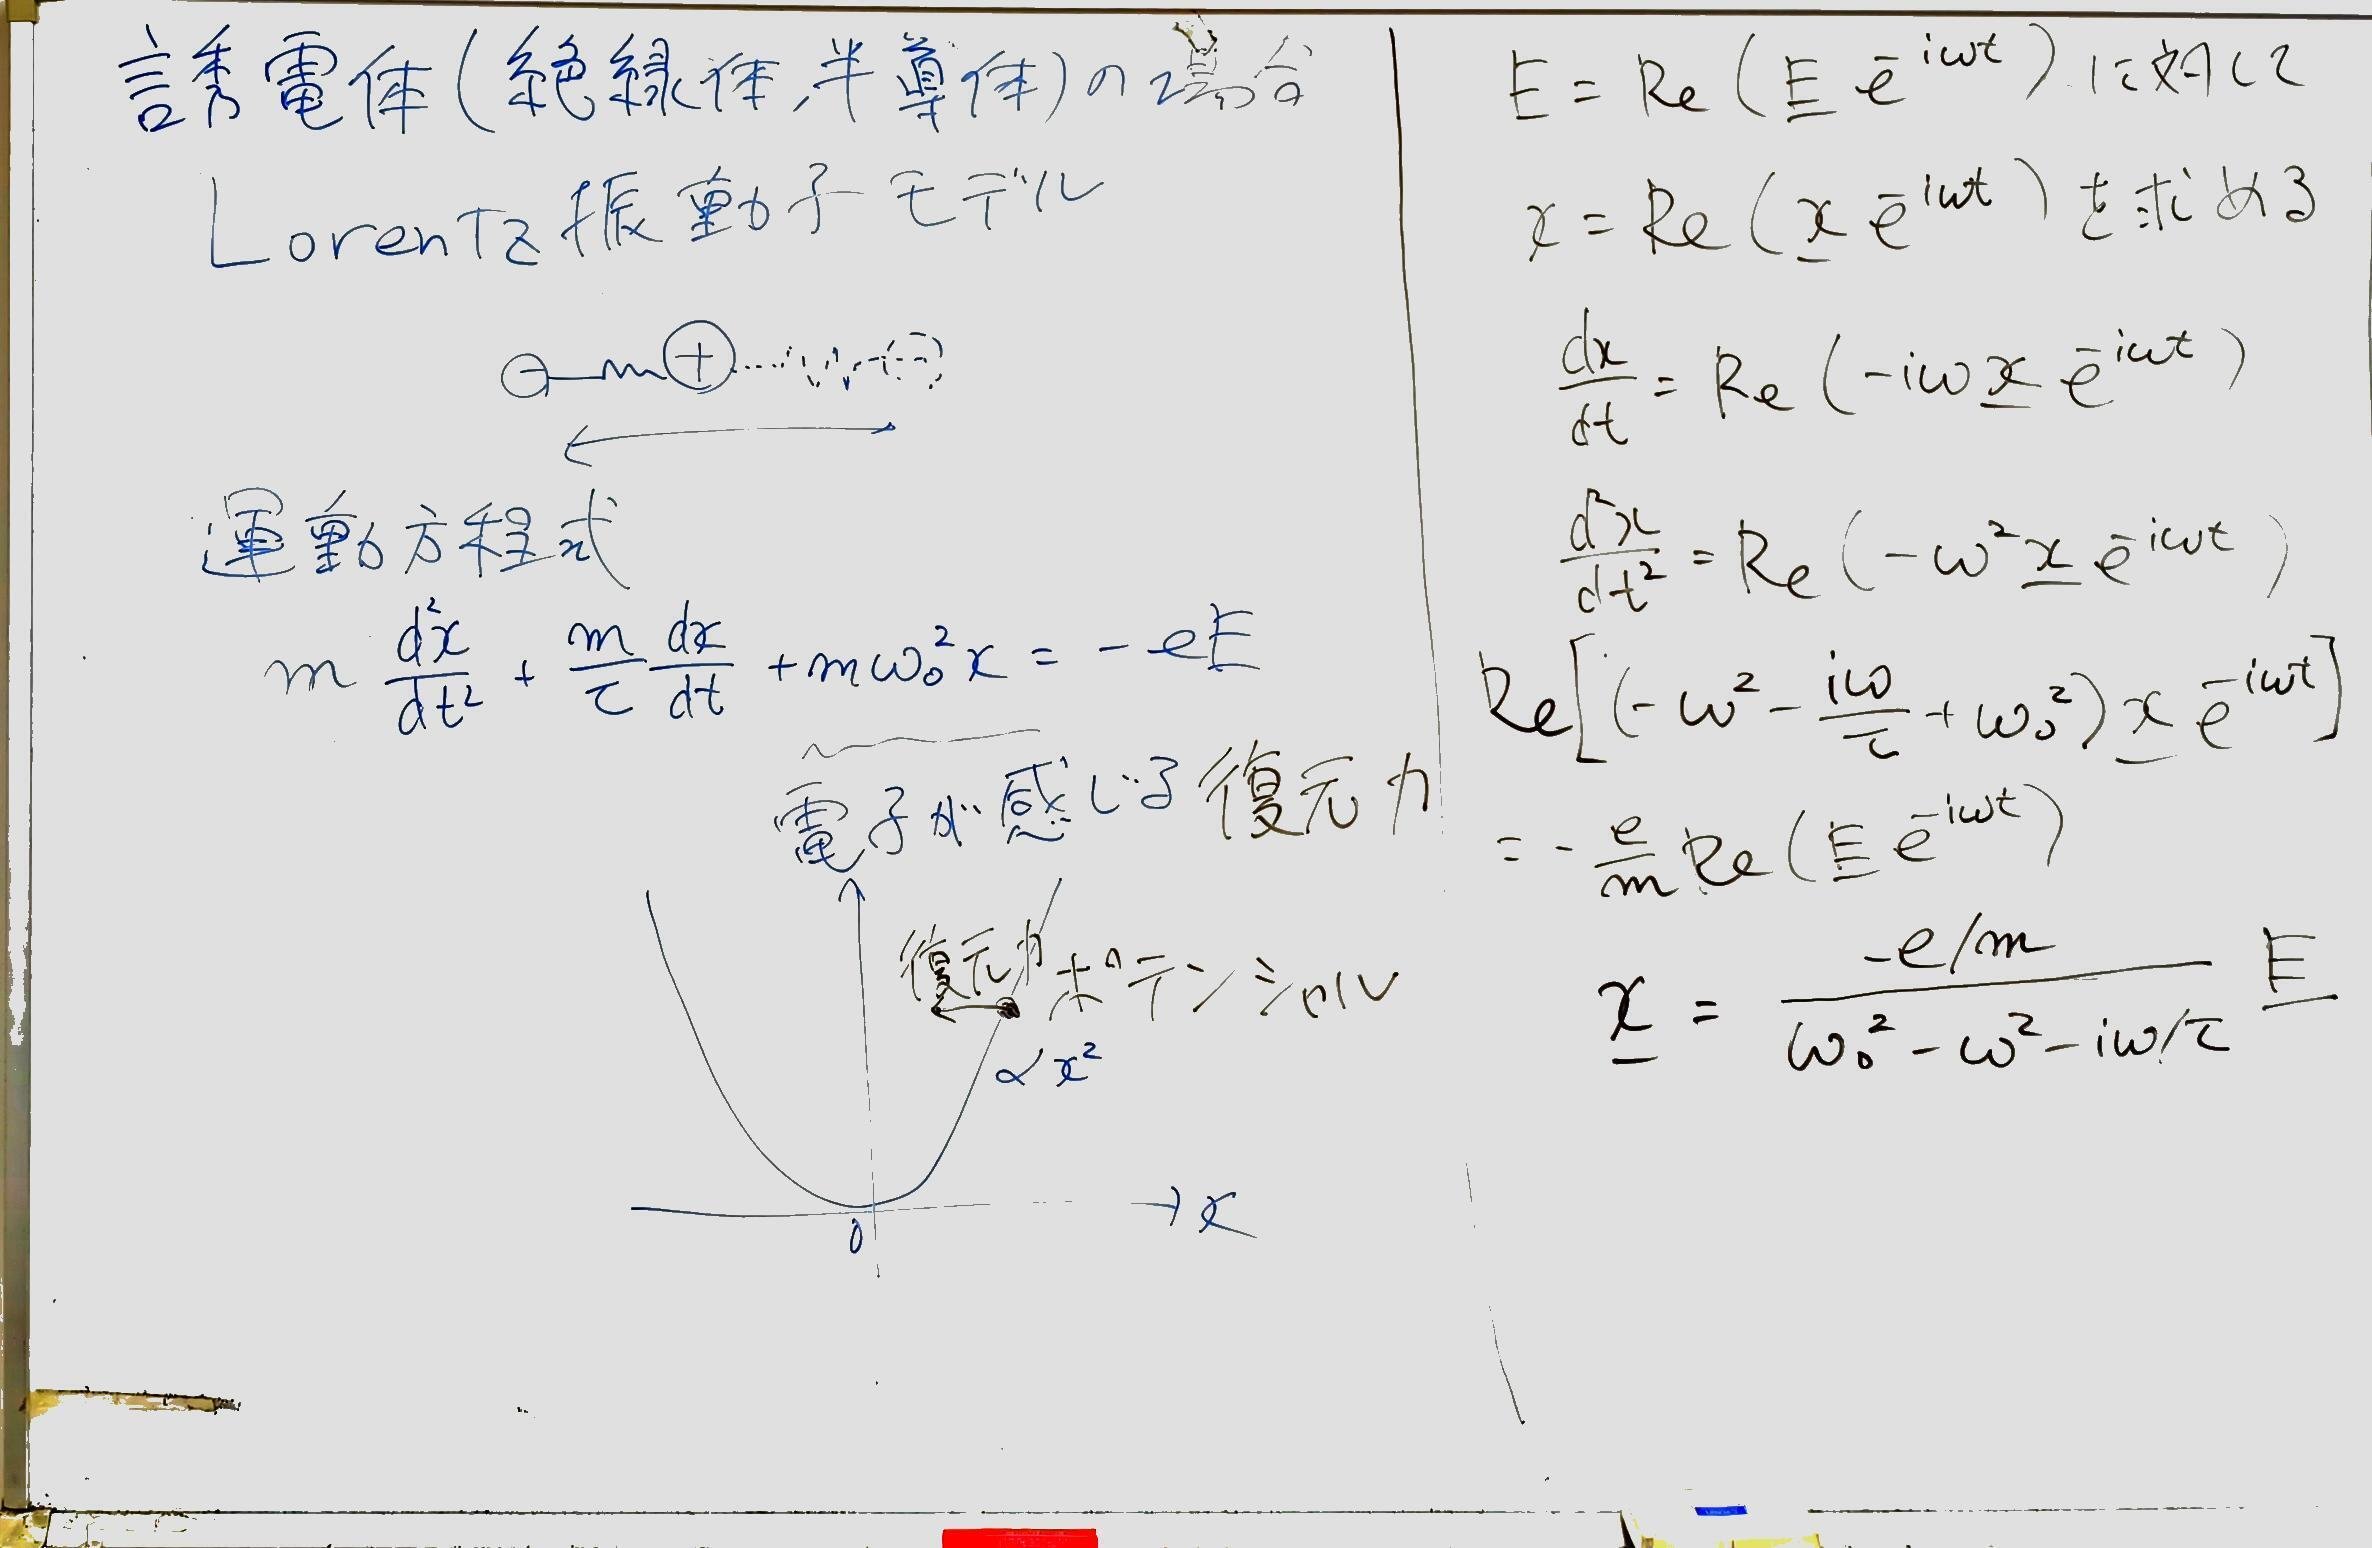 誘電体(絶縁体,半導体)の場合
Lorentz振動子モデル
運動方程式
m d²x/dt² + m/τ dx/dt + mω₀²x = -eE
電子が感じる復元力
復元力 ポテンシャル
∝x²
0
→x
E = Re(E̲ e^{-iωt}) に対して
x = Re(x̲ e^{-iωt}) を求める
dx/dt = Re(-iωx̲ e^{-iωt})
d²x/dt² = Re(-ω²x̲ e^{-iωt})
Re[(-ω² - iω/τ + ω₀²)x̲ e^{-iωt}]
= -e/m Re(E̲ e^{-iωt})
x̲ = (-e/m)/(ω₀² - ω² - iω/τ) E̲